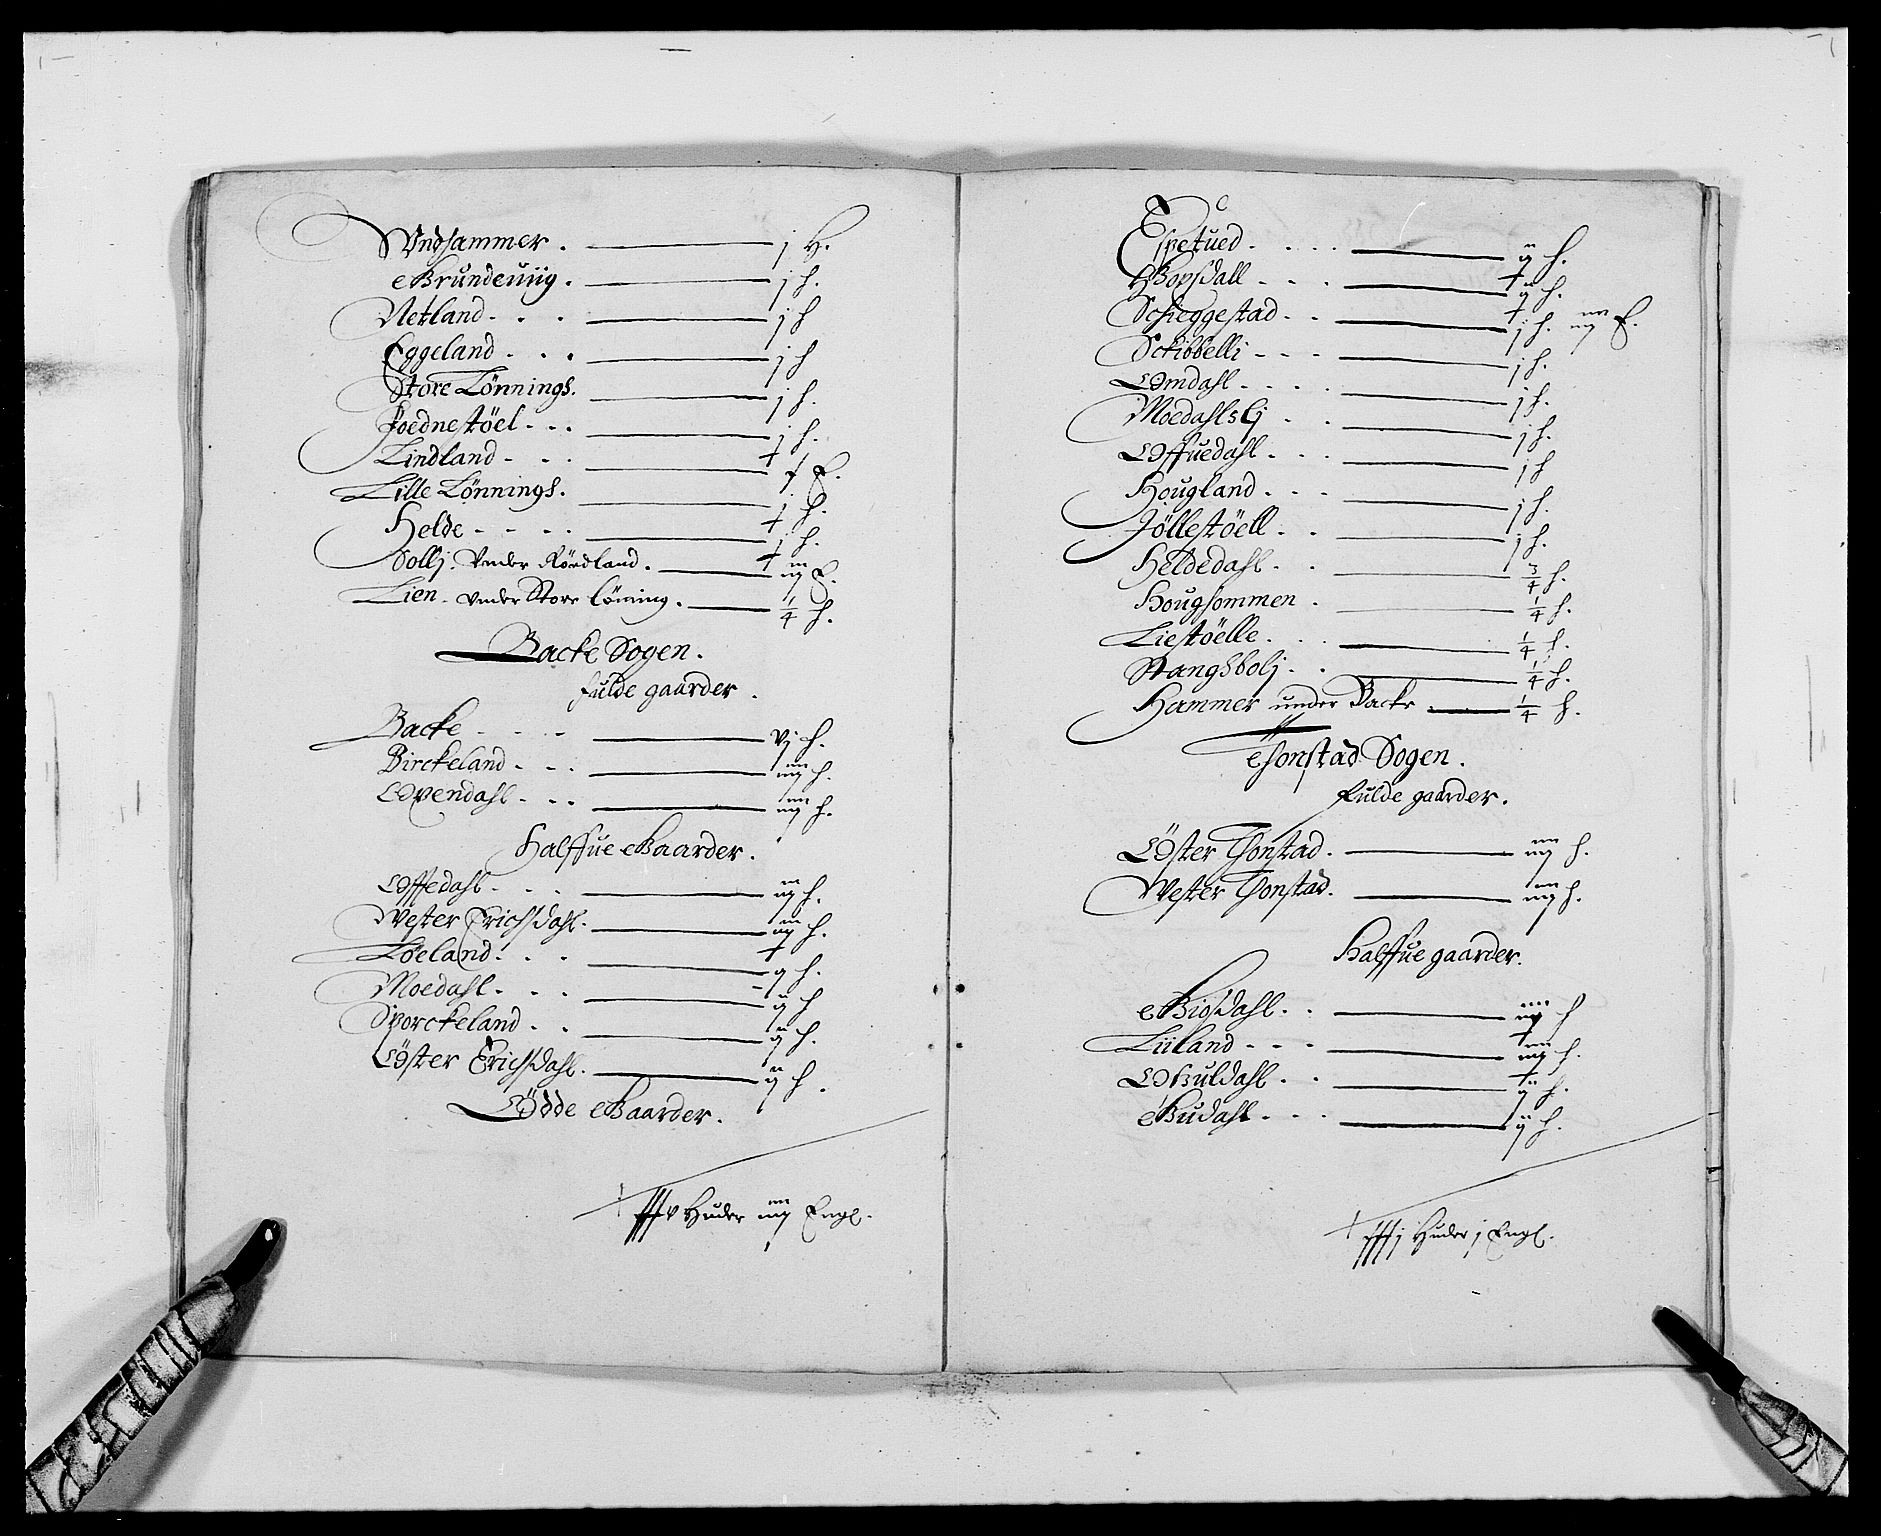 Vndhammer . j H.
Grundeviig . j h.
Netland . . . j h
Eggeland . . . j h
Store Lönnings. j h.
Joednestöel . . . j h.
Lindland . . . + j E.
Lille Lönnings. j h.
Helde . . . . + j h.
Solli. Vnder Rördland. + iij E.
Lien. vnder Store Löning. ¼ h.
Backe Sogen.
fulde gaarder.
Backe . . . . vj h.
Birckeland . . . iiij h.
Ovendahl . . . iiij h.
Halffue Gaarder.
Offedahl . . . iij h.
Wester Erichsdahl. iij h.
Löeland . . . + ij h.
Moedahl . . . ij h
Sporckeland . . ij h.
Öster Erichsdahl. ij h.
Ödde Gaarder.
+ Huder iiij Engl.
Espetued . . . . ij h.
Gopsdall . . . + ij h.
Schieggestad . . + j h. iiij E.
Schibbelli . . . j h.
Omdahl . . . . j h.
Moedahlsli . . j h.
Offuedahl . . . j h
Hougland . . . j h.
Jöllestöell . . j h.
Heldedahl . . ¾ h.
Houghommen . ¼ h.
Liestöelle . . . ¼ h.
Stangsboli . . ¼ h.
Hammer under Backe . ¼ h.
Thonstad Sogen.
fulde gaarder.
Öster Thonstad. iiij h.
Wester Thonstad. iiij h.
Halffue gaarder.
Giosdahl . . iiij h
Liiland . . . + iiij h.
Ousdahl . . + ij h.
Gudahl . . . ij h.
+ Huder j Engl.